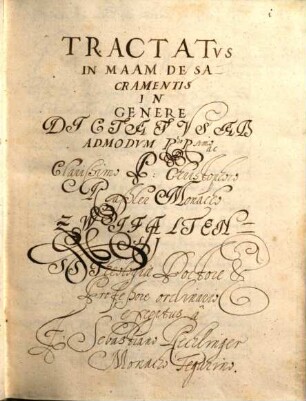 TRACTATVS
IN MAAM DE SA-
CRAMENTIS
IN
GENERE
DICTATVS AB
ADMODVM
Clarissimo P: Christophoro
Monacho
ZWIFALTEN-
SI
SS Theologiæ Doctore &
Professore ordinario
exceptus a
F Sebastiano
Monacho Tegurino.